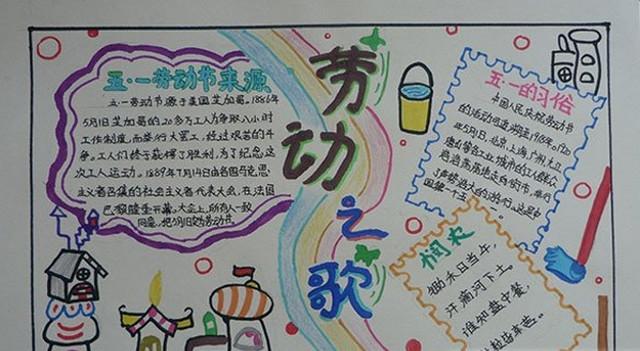 五·一劳动节来源
五·一劳动节源于美国芝加哥。1886年
5月1日芝加哥的20多万工人为争取八小时
工作制度,而举行大罢工,经过艰苦的斗
争。工人们终于获得了胜利,为了纪念这
次工人运动。1889年7月14日由各国马克思
主义者召集的社会主义者代表大会,在法国
巴黎隆重开幕。大会上,所有人一致
同意。把5月1日定为劳动节
劳动之歌
五·一的习俗
中国人民庆祝劳动节
的活动可追溯至1918年。1920
年5月1日,北京,上海,广州,九江
唐山等各工业城市的工人群众
浩浩荡荡地走向街市,举行
了声势浩大的游行
悯农
锄禾日当午,
汗滴河下土。
谁知盘中餐,
粒粒皆辛苦。